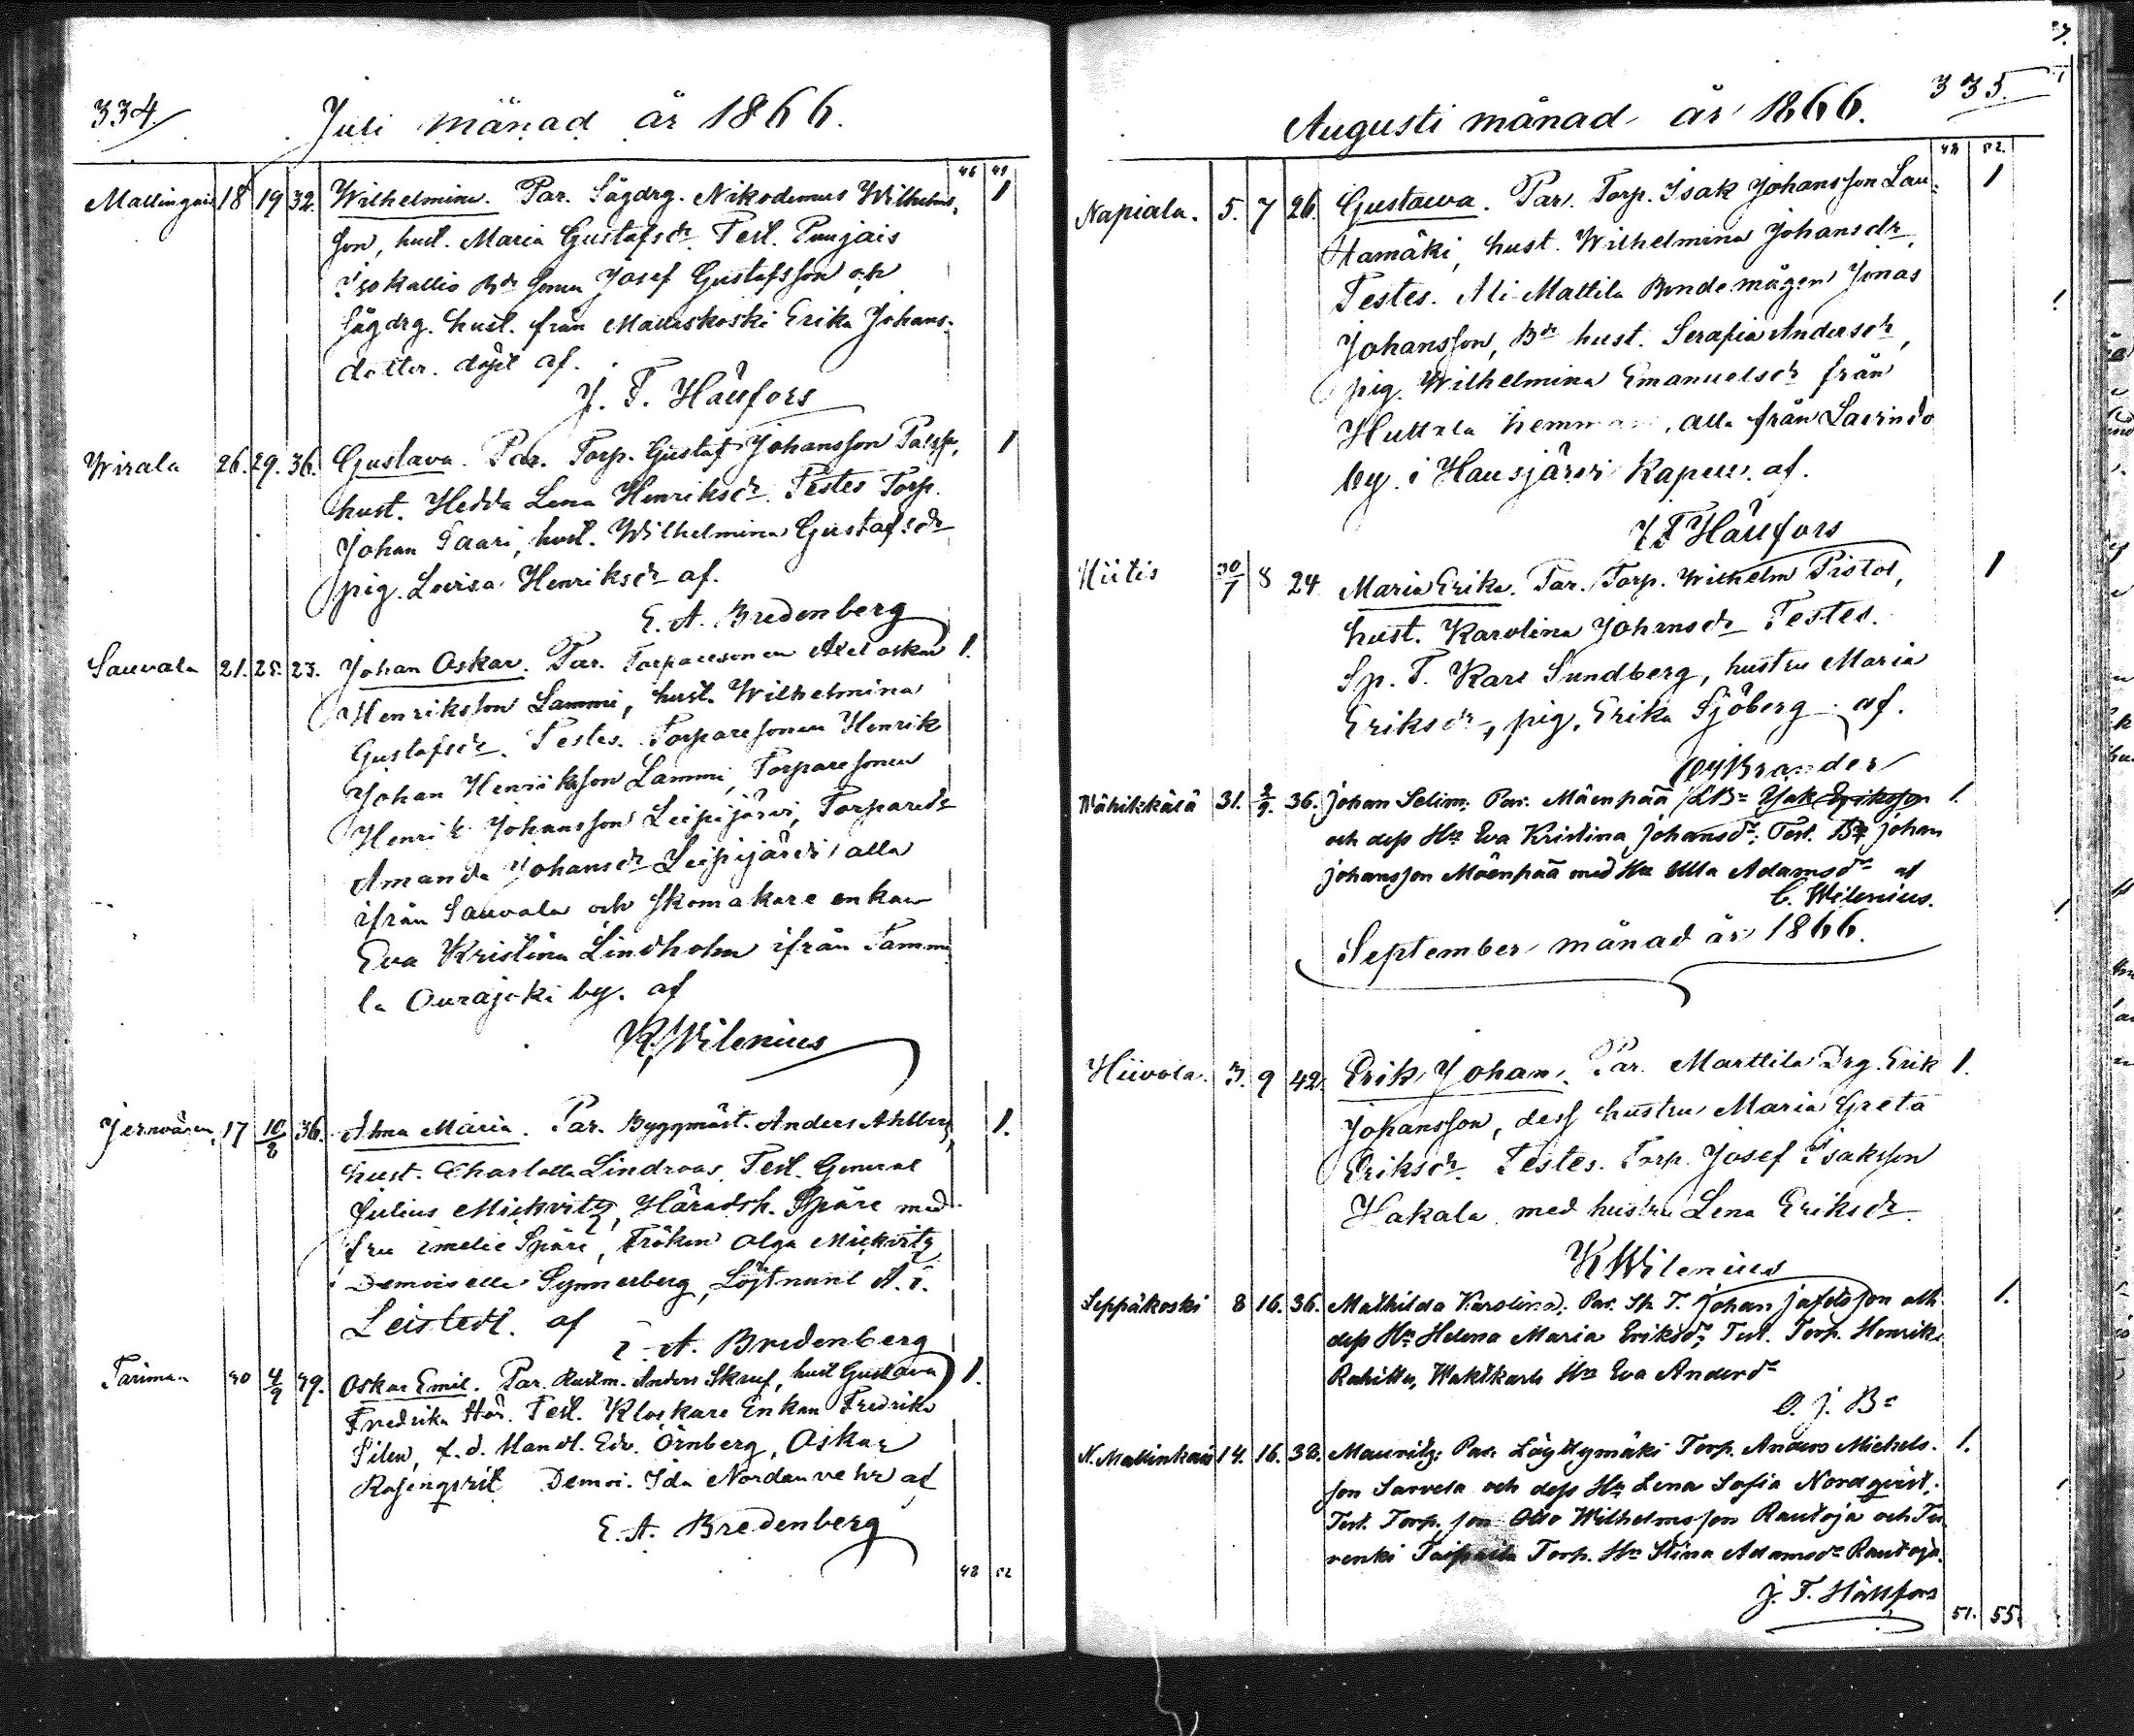 334
Juli månad år 1866.
46 49
Mallinkais 18 19 32. Wilhelmina. Par. Sågdrg. Nikodemus Wilhelms- 1
son, hust. Maria Gustafsdr. Test. Puujais
Isokallio Bde sonen Josef Gustafsson och
Sågdrg. hust. från Mallaskoski Erika Johans-
dotter. döpt af.
J. T. Hällfors
Wirala 26. 29. 36. Gustava. Par. Torp. Gustaf Johansson 1
hust. Hedda Lena Henriksdr. Testes Torp.
Johan Saari, hust. Wilhelmina Gustafsdr
pig. Lovisa Henriksdr af.
E. A. Bredenberg
Sauvala 21. 25. 23. Johan Oskar. Par. Torparesonen Axel Oskar 1.
Henriksson Lammi, hust. Wilhelmina
Gustafsdr. Testes. Torparesonen Henrik
Johan Henriksson Lammi, Torparesonen
Henrik Johansson Leipijärvi, Torparedr
Amanda Johansdr Leipijärvi alla
ifrån Sauvala och Skomakare enkan
Eva Kristina Lindholm ifrån Tamme
la Ourajoki by. af
K. Wilenius
Jernvägen 17 10/8 36. Alma Maria. Par. Byggmäst. Anders Ahlberg, 1.
hust. Charlotta Lindroos. Test. General
Julius Mickvitz, Häradsh. Spåre med
fru Emelie Spåre, Fröken Olga Mickvitz
Demoiselle Synnerberg, Löjtnant A. F.
Leistedt. af
E. A. Bredenberg
30 4/9 39. Oskar Emil. Par. Rustm. Anders Skruf, hust Gustava 1.
Fredrika Hör. Test. Klockare Enkan Fredrika
Silen, f. d. Handl. Edv. Örnberg, Oskar
Rosenqvist Demoi. Ida Nordenvehr af
E. A. Bredenberg
48 52
335
Augusti månad år 1866.
48 52.
Napiala. 5. 7 26. Gustawa. Par. Torp. Isak Johansson Lau- 1
tamäki, hust. Wilhelmina Johansdr,
Testes. Ali-Mattila Bondemågen Jonas
Johansson, Bde hust. Serafia Andersdr,
pig. Wilhelmina Emanuelsdr från
Huttala hemman, alla från Lavinto
by i Hausjärvi Kapell. af.
J T Hällfors
Hiitis 30/7 8 24 Maria Erika. Par. Torp. Wilhelm Pistol, 1
hust. Karolina Johansdr Testes.
Sp. T. Karl Sundberg, hustru Maria
Eriksdr, pig. Erika Sjöberg af.
OJ Brander
Wähikkälä 31. 2/9. 36. Johan Selim; Par. Mäenpää LBde Isak Eriksson 1.
och dess Hu Eva Kristina Johansdr; Test. Bde Johan
Johansson Mäenpää med Hu Ulla Adamsdr af
C. Wilenius.
September månad år 1866.
Hiivola. 3. 9 42. Erik Johan. Par. Marttila Drg. Erik 1.
Johansson, dess hustru Maria Greta
Eriksdr. Testes. Torp. Josef Isaksson
Hakala med hustru Lena Eriksdr.
K Wilenius
Seppäkoski 8 16. 36. Mathilda Karolina; Par. Sp T. Johan och 1.
dess Hu Helena Maria Eriksdr; Test. Torp. Henrik
Rahitta, Waktkarls Hu Eva Andersdr
O. J. Br
N. Mallinkais 14. 16. 38. Mauritz; Par. Löyttymäki Torp. Anders Michels- 1.
son Sarvela och dess Hu Lena Sofia Nordqvist;
Test. Torp. son Otto Wilhelmsson Rautoja och Tu
renki Taipaila Torp. Hu Stina Adamsdr Rautoja.
J. T. Hällfors
51. 55.